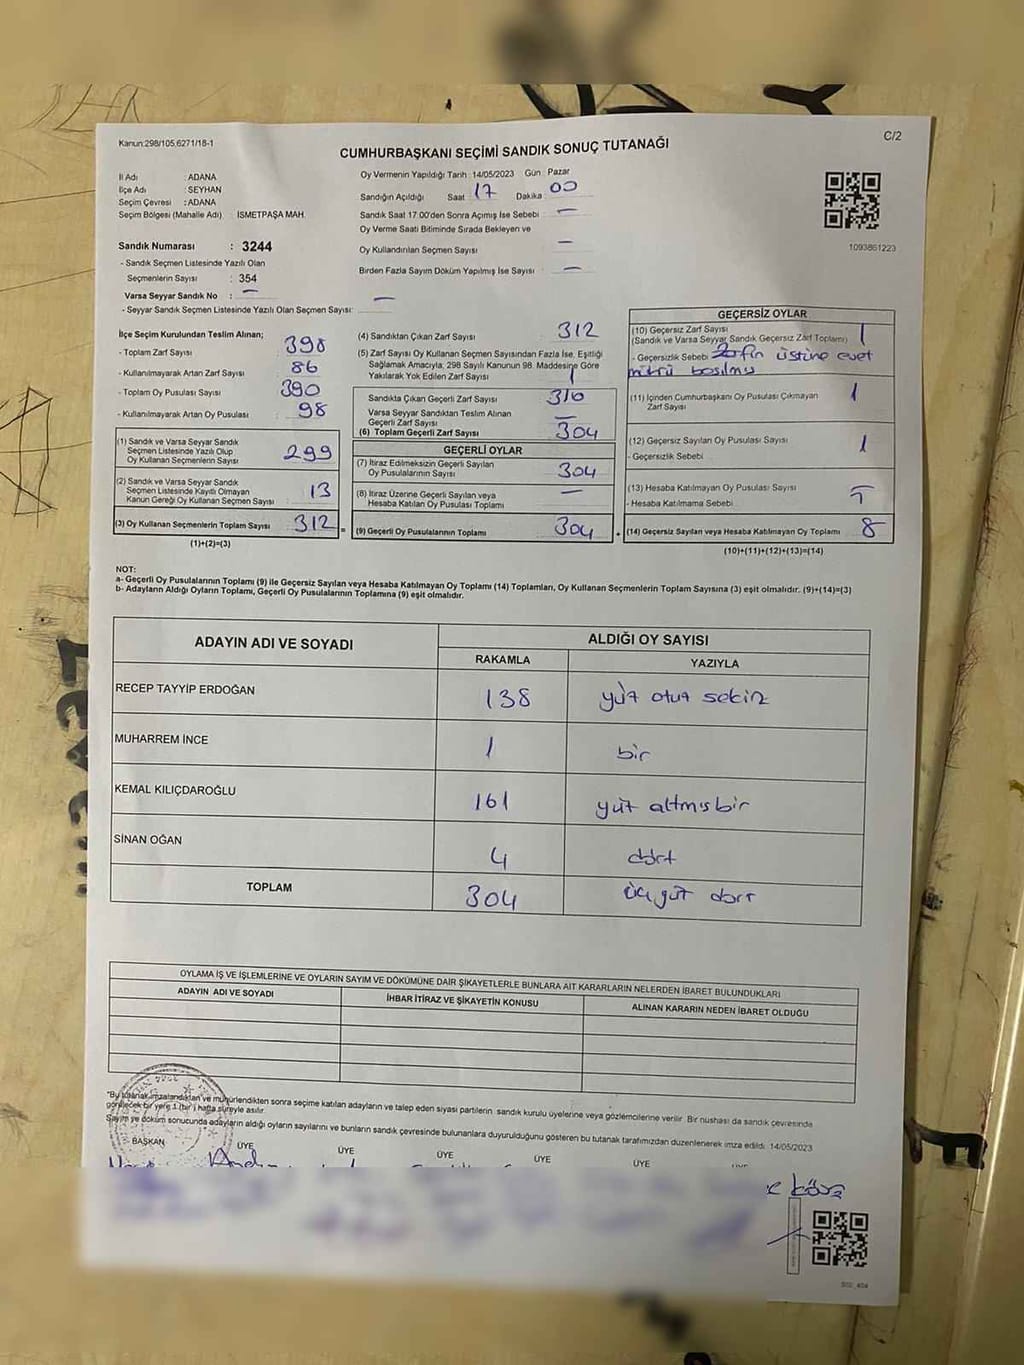 Kanun:298/105,6271/18-1
C/2
CUMHURBAŞKANI SEÇİMİ SANDIK SONUÇ TUTANAĞI
İl Adı : ADANA
İlçe Adı : SEYHAN
Seçim Çevresi : ADANA
Seçim Bölgesi (Mahalle Adı) : İSMETPAŞA MAH.
Sandık Numarası : 3244
- Sandık Seçmen Listesinde Yazılı Olan
Seçmenlerin Sayısı : 354
Varsa Seyyar Sandık No : —
- Seyyar Sandık Seçmen Listesinde Yazılı Olan Seçmen Sayısı: —
Oy Vermenin Yapıldığı Tarih :14/05/2023 Gün : Pazar
Sandığın Açıldığı Saat 17 Dakika 00
Sandık Saat 17.00'den Sonra Açımış İse Sebebi —
Oy Verme Saati Bitiminde Sırada Bekleyen ve
Oy Kullandırılan Seçmen Sayısı —
Birden Fazla Sayım Döküm Yapılmış İse Sayısı —
1093861223
İlçe Seçim Kurulundan Teslim Alınan;
- Toplam Zarf Sayısı 398
- Kullanılmayarak Artan Zarf Sayısı 86
- Toplam Oy Pusulası Sayısı 390
- Kullanılmayarak Artan Oy Pusulası 98
(1) Sandık ve Varsa Seyyar Sandık
Seçmen Listesinde Yazılı Olup
Oy Kullanan Seçmenlerin Sayısı 299
(2) Sandık ve Varsa Seyyar Sandık
Seçmen Listesinde Kayıtlı Olmayan
Kanun Gereği Oy Kullanan Seçmen Sayısı 13
(3) Oy Kullanan Seçmenlerin Toplam Sayısı 312 =
(1)+(2)=(3)
(4) Sandıktan Çıkan Zarf Sayısı 312
(5) Zarf Sayısı Oy Kullanan Seçmen Sayısından Fazla İse, Eşitliği
Sağlamak Amacıyla; 298 Sayılı Kanunun 98. Maddesine Göre
Yakılarak Yok Edilen Zarf Sayısı 1
Sandıkta Çıkan Geçerli Zarf Sayısı 310
Varsa Seyyar Sandıktan Teslim Alınan
Geçerli Zarf Sayısı —
(6) Toplam Geçerli Zarf Sayısı 304
GEÇERLİ OYLAR
(7) İtiraz Edilmeksizin Geçerli Sayılan
Oy Pusulalarının Sayısı 304
(8) İtiraz Üzerine Geçerli Sayılan veya
Hesaba Katılan Oy Pusulası Toplamı —
(9) Geçerli Oy Pusulalarının Toplamı 304 +
GEÇERSİZ OYLAR
(10) Geçersiz Zarf Sayısı 1
(Sandık ve Varsa Seyyar Sandık Geçersiz Zarf Toplamı)
- Geçersizlik Sebebi Zarfın üstüne evet
mührü basılmış
(11) İçinden Cumhurbaşkanı Oy Pusulası Çıkmayan
Zarf Sayısı 1
(12) Geçersiz Sayılan Oy Pusulası Sayısı 1
- Geçersizlik Sebebi
(13) Hesaba Katılmayan Oy Pusulası Sayısı
- Hesaba Katılmama Sebebi
(14) Geçersiz Sayılan veya Hesaba Katılmayan Oy Toplamı 8
(10)+(11)+(12)+(13)=(14)
NOT:
a- Geçerli Oy Pusulalarının Toplamı (9) ile Geçersiz Sayılan veya Hesaba Katılmayan Oy Toplamı (14) Toplamları, Oy Kullanan Seçmenlerin Toplam Sayısına (3) eşit olmalıdır. (9)+(14)=(3)
b- Adayların Aldığı Oyların Toplamı, Geçerli Oy Pusulalarının Toplamına (9) eşit olmalıdır.
ADAYIN ADI VE SOYADI
ALDIĞI OY SAYISI
RAKAMLA
YAZIYLA
RECEP TAYYİP ERDOĞAN 138 yüz otuz sekiz
MUHARREM İNCE 1 bir
KEMAL KILIÇDAROĞLU 161 yüz altmış bir
SİNAN OĞAN 4 dört
TOPLAM 304 üçyüz dört
OYLAMA İŞ VE İŞLEMLERİNE VE OYLARIN SAYIM VE DÖKÜMÜNE DAİR ŞİKAYETLERLE BUNLARA AİT KARARLARIN NELERDEN İBARET BULUNDUKLARI
ADAYIN ADI VE SOYADI
İHBAR İTİRAZ VE ŞİKAYETİN KONUSU
ALINAN KARARIN NEDEN İBARET OLDUĞU
"Bu tutanak imzalandıktan ve mühürlendikten sonra seçime katılan adayların ve talep eden siyasi partilerin sandık kurulu üyelerine veya gözlemcilerine verilir. Bir nushası da sandık çevresinde
görülecek bir yere 1 (bir) hafta süreyle asılır.
Sayım ve döküm sonucunda adayların aldığı oyların sayılarını ve bunların sandık çevresinde bulunanlara duyurulduğunu gösteren bu tutanak tarafımızdan düzenlenerek imza edildi. 14/05/2023
BAŞKAN ÜYE ÜYE ÜYE ÜYE ÜYE